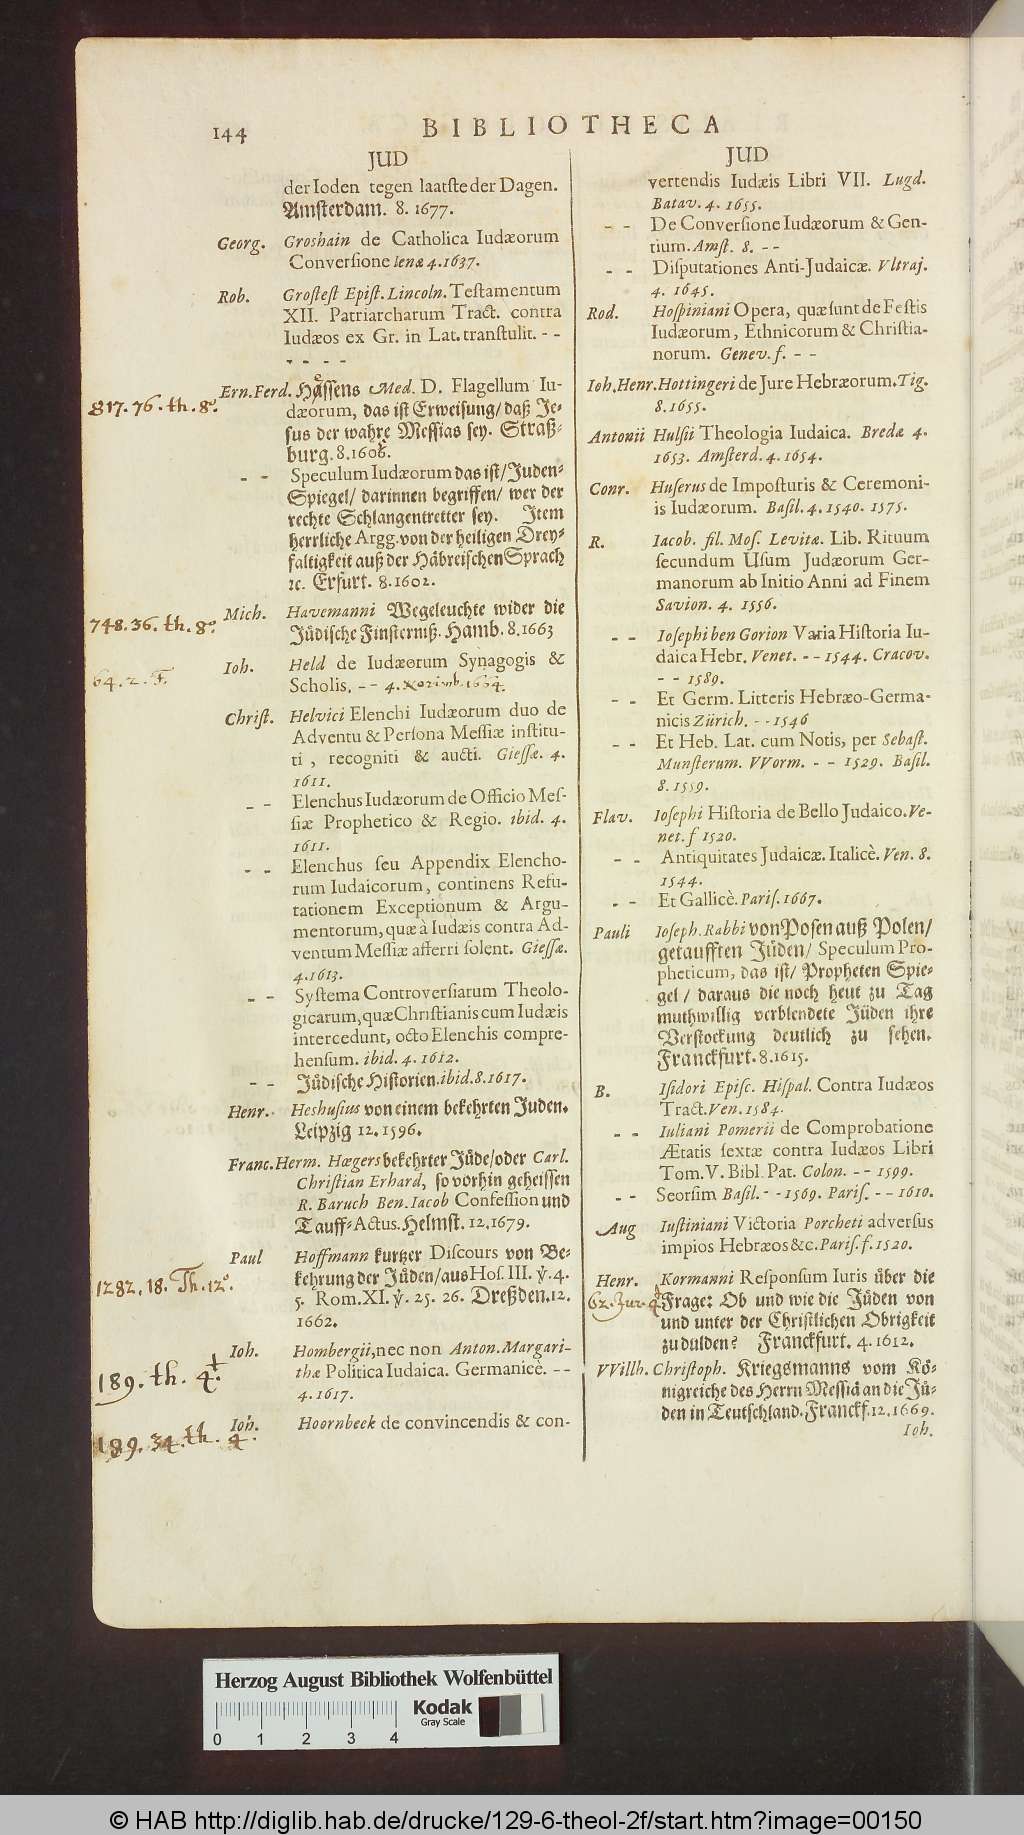 144
BIBLIOTHECA
JUD
der Ioden tegen laatste der Dagen.
Amsterdam. 8. 1677.
Georg. Groshain de Catholica Iudæorum
Conversione Ienæ 4. 1637.
Rob. Grostest Epist. Lincoln. Testamentum
XII. Patriarcharum Tract. contra
Iudæos ex Gr. in Lat. transtulit. - -
- - - -
817. 76. th. 8o.
Ern. Ferd. Hässens Med. D. Flagellum Iu-
dæorum, das ist Erweisung/ daß Je-
sus der wahre Messias sey. Straß-
burg. 8. 1606.
- - Speculum Iudæorum das ist/ Juden-
Spiegel/ darinnen begriffen/ wer der
rechte Schlangentretter sey. Item
herrliche Argg. von der heiligen Drey-
faltigkeit auß der Häbreischen Sprach
ꝛc. Erfurt. 8. 1602.
748. 36. th. 8o.
Mich. Havemanni Wegeleuchte wider die
Jüdische Finsterniß. Hamb. 8. 1663
64. 2. F.
Ioh. Held de Iudæorum Synagogis &
Scholis. - - 4. Norimb. 1664.
Christ. Helvici Elenchi Iudæorum duo de
Adventu & Persona Messiæ institu-
ti, recogniti & aucti. Giessæ. 4.
1611.
- - Elenchus Iudæorum de Officio Mes-
siæ Prophetico & Regio. ibid. 4.
1611.
- - Elenchus seu Appendix Elencho-
rum Iudaicorum, continens Refu-
tationem Exceptionum & Argu-
mentorum, quæ à Iudæis contra Ad-
ventum Messiæ afferri solent. Giessæ.
4. 1613.
- - Systema Controversiarum Theolo-
gicarum, quæ Christianis cum Iudæis
intercedunt, octo Elenchis compre-
hensum. ibid. 4. 1612.
- - Jüdische Historien. ibid. 8. 1617.
Henr. Heshusius von einem bekehrten Juden.
Leipzig 12. 1596.
Franc. Herm. Hægers bekehrter Jüde/ oder Carl.
Christian Erhard, so vorhin geheissen
R. Baruch Ben. Iacob Confession und
Tauff-Actus. Helmst. 12. 1679.
1282. 18. Th. 12o.
Paul Hoffmann kurtzer Discours von Be-
kehrung der Jüden/ aus Hos. III. ꝟ. 4.
5. Rom. XI. ꝟ. 25. 26. Dreßden. 12.
1662.
189. th. 4.
Ioh. Hombergii, nec non Anton. Margari-
thæ Politica Iudaica. Germanicè. - -
4. 1617.
189. 34. th. 4.
Ioh. Hoornbeek de convincendis & con-
JUD
vertendis Iudæis Libri VII. Lugd.
Batav. 4. 1655.
- - De Conversione Iudæorum & Gen-
tium. Amst. 8. - -
- - Disputationes Anti-Judaicæ. Vltraj.
4. 1645.
Rod. Hospiniani Opera, quæ sunt de Festis
Iudæorum, Ethnicorum & Christia-
norum. Genev. f. - -
Ioh. Henr. Hottingeri de Jure Hebræorum. Tig.
8. 1655.
Antonii Hulsii Theologia Iudaica. Bredæ 4.
1653. Amsterd. 4. 1654.
Conr. Huserus de Imposturis & Ceremoni-
is Iudæorum. Basil. 4. 1540. 1575.
R. Iacob. fil. Mos. Levitæ. Lib. Rituum
secundum Usum Judæorum Ger-
manorum ab Initio Anni ad Finem
Savion. 4. 1556.
- - Iosephi ben Gorion Varia Historia Iu-
daica Hebr. Venet. - - 1544. Cracov.
- - 1589.
- - Et Germ. Litteris Hebræo-Germa-
nicis Zürich. - - 1546
- - Et Heb. Lat. cum Notis, per Sebast.
Munsterum. VVorm. - - 1529. Basil.
8. 1559.
Flav. Iosephi Historia de Bello Judaico. Ve-
net. f 1520.
- - Antiquitates Judaicæ. Italicè. Ven. 8.
1544.
- - Et Gallicè. Paris. 1667.
Pauli Ioseph. Rabbi von Posen auß Polen/
getaufften Jüden/ Speculum Pro-
pheticum, das ist/ Propheten Spie-
gel/ daraus die noch heut zu Tag
muthwillig verblendete Jüden ihre
Verstockung deutlich zu sehen.
Franckfurt. 8. 1615.
B. Isidori Episc. Hispal. Contra Iudæos
Tract. Ven. 1584.
- - Iuliani Pomerii de Comprobatione
Ætatis sextæ contra Iudæos Libri
Tom. V. Bibl. Pat. Colon. - - 1599.
- - Seorsim Basil. - - 1569. Paris. - - 1610.
Aug Iustiniani Victoria Porcheti adversus
impios Hebræos &c. Paris. f. 1520.
Henr. Kormanni Responsum Iuris über die
62. Jur. 4
Frage: Ob und wie die Jüden von
und unter der Christlichen Obrigkeit
zu dulden? Franckfurt. 4. 1612.
VVillh. Christoph. Kriegsmanns vom Kö-
nigreiche des Herrn Messiä an die Jü-
den in Teutschland. Franckf. 12. 1669.
Ioh.
Herzog August Bibliothek Wolfenbüttel
Kodak
Gray Scale
0 1 2 3 4
© HAB http://diglib.hab.de/drucke/129-6-theol-2f/start.htm?image=00150